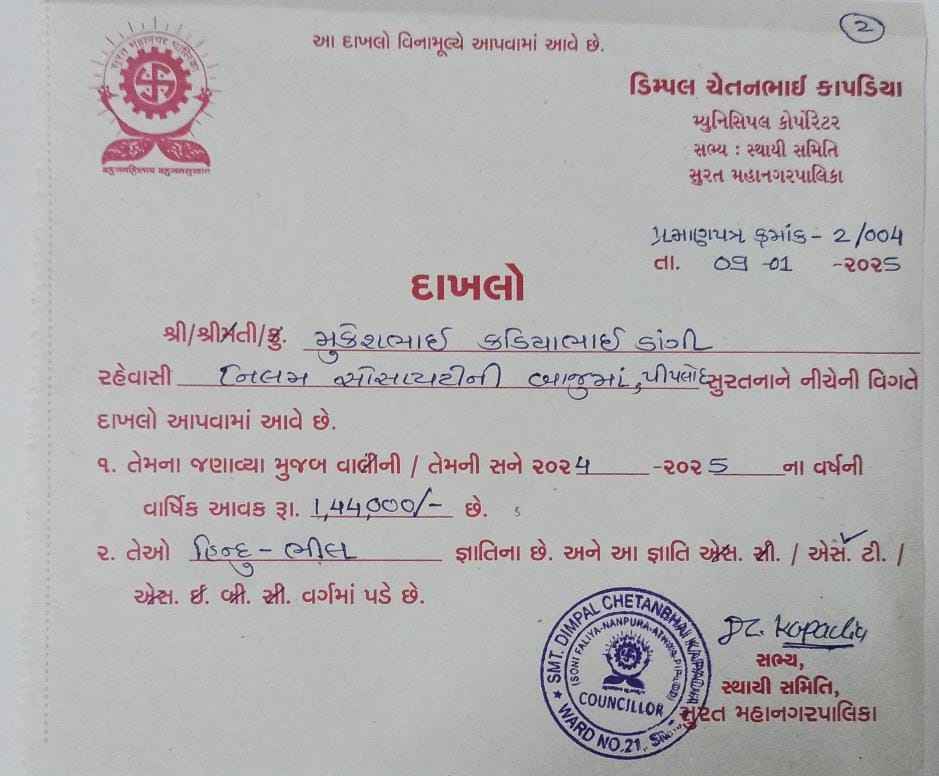 2
આ દાખલો વિનામૂલ્યે આપવામાં આવે છે.
સુરત મહાનગર પાલિકા
બહુજનહિતાય બહુજનસુખાય
ડિમ્પલ ચેતનભાઈ કાપડિયા
મ્યુનિસિપલ કોર્પોરેટર
સભ્ય : સ્થાયી સમિતિ
સુરત મહાનગરપાલિકા
પ્રમાણપત્ર ક્રમાંક - 2/004
તા. 09 -01 -૨૦૨5
દાખલો
શ્રી/શ્રીમતી/કુ. મુકેશભાઈ કડિયાભાઈ ડાંગી
રહેવાસી નિલમ સોસાયટીની બાજુમાં, પીપલોદ સુરતનાને નીચેની વિગતે
દાખલો આપવામાં આવે છે.
૧. તેમના જણાવ્યા મુજબ વાલીની / તેમની સને ૨૦૨4 -૨૦૨5 ના વર્ષની
વાર્ષિક આવક રૂા. 1,44,000/- છે.
૨. તેઓ હિન્દુ - ભીલ જ્ઞાતિના છે. અને આ જ્ઞાતિ એસ. સી. / એસ. ટી. /
એસ. ઈ. બી. સી. વર્ગમાં પડે છે.
SMT. DIMPAL CHETANBHAI KAPADIA
(SONI FALIYA-NANPURA-ATHWA-PIPLOD)
COUNCILLOR
WARD NO.21,
DC. Kapadia
સભ્ય,
સ્થાયી સમિતિ,
સુરત મહાનગરપાલિકા